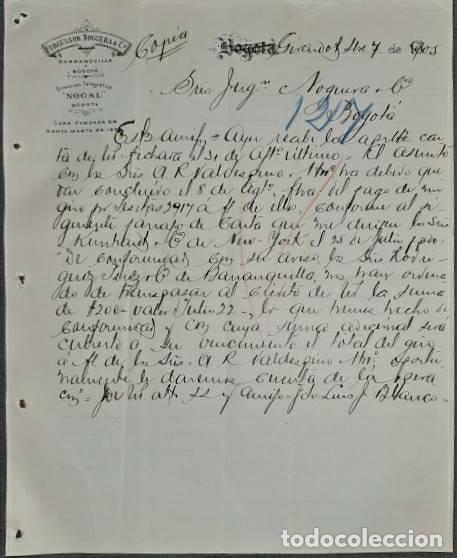 FERGUSSON NOGUERA & Cº
BARRANQUILLA
Y
BOGOTA
Dirección Telegráfica
"NOGAL"
BOGOTA
CASA FUNDADA EN
SANTA MARTA EN
Copia
Bogotá Girardot, 7 de 1903
Sres Ferg.ⁿ Noguera & Cº
Bogotá
127
Ests Amigos = Ayer recibí la apble car
ta de Uds fechada el 31 de Agto último. El asunto
con los Sres A. R. Valdespino Hnos ha debido que
dar concluido el 8 de Agto. Atrás el pago de mi
giro por Pesetas 2917 a f/ de ellos, conforme al si
guiente párrafo de Carta que me dirigen los Sres
Kunhardt & Cº de New-York el 25 de Julio ppdo
"De conformidad con su aviso, los Sres Rodri
guez & Cº de Barranquilla, nos han ordena
do de traspasar al crédito de Ud la suma
de $200- valor Julio 22-, lo que hemos hecho de
conformidad y con cuya suma adicional será
cubierto a su vencimiento el total del giro
a f/ de los Sres. A. R. Valdespino Hnos. Oportu
namente le daremos cuenta de la opera
ción"= De Uds att. SS y Amigo = fdo Luis J. Blanco =
todocoleccion
todocoleccion.net